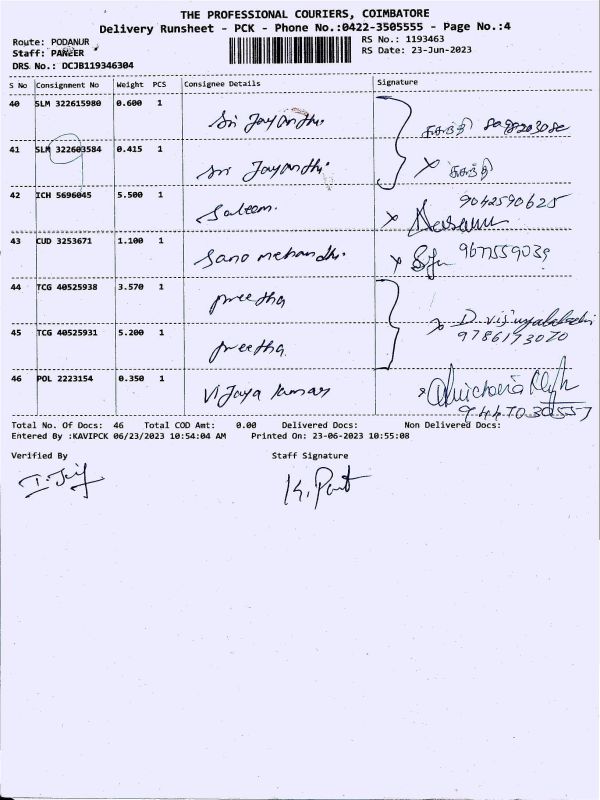 THE PROFESSIONAL COURIERS, COIMBATORE
Delivery Runsheet - PCK - Phone No.:0422-3505555 - Page No.:4
Route: PODANUR
RS No.: 1193463
Staff: PANEER
RS Date: 23-Jun-2023
DRS No.: DCJB119346304
S No Consignment No Weight PCS Consignee Details Signature
40 SLM 322615980 0.600 1 Sri Jayanthi
41 SLM 322603584 0.415 1 Sri Jayanthi
42 ICH 5696045 5.500 1 Saleem. 9042590625
43 CUD 3253671 1.100 1 Sano mehandhi. 9677559039
44 TCG 40525938 3.570 1 preetha
D. vijayalakshi
45 TCG 40525931 5.200 1 preetha 9786173070
46 POL 2223154 0.350 1 Vijaya kumar
9447030557
Total No. Of Docs: 46 Total COD Amt: 0.00 Delivered Docs: Non Delivered Docs:
Entered By :KAVIPCK 06/23/2023 10:54:04 AM Printed On: 23-06-2023 10:55:08
Verified By Staff Signature